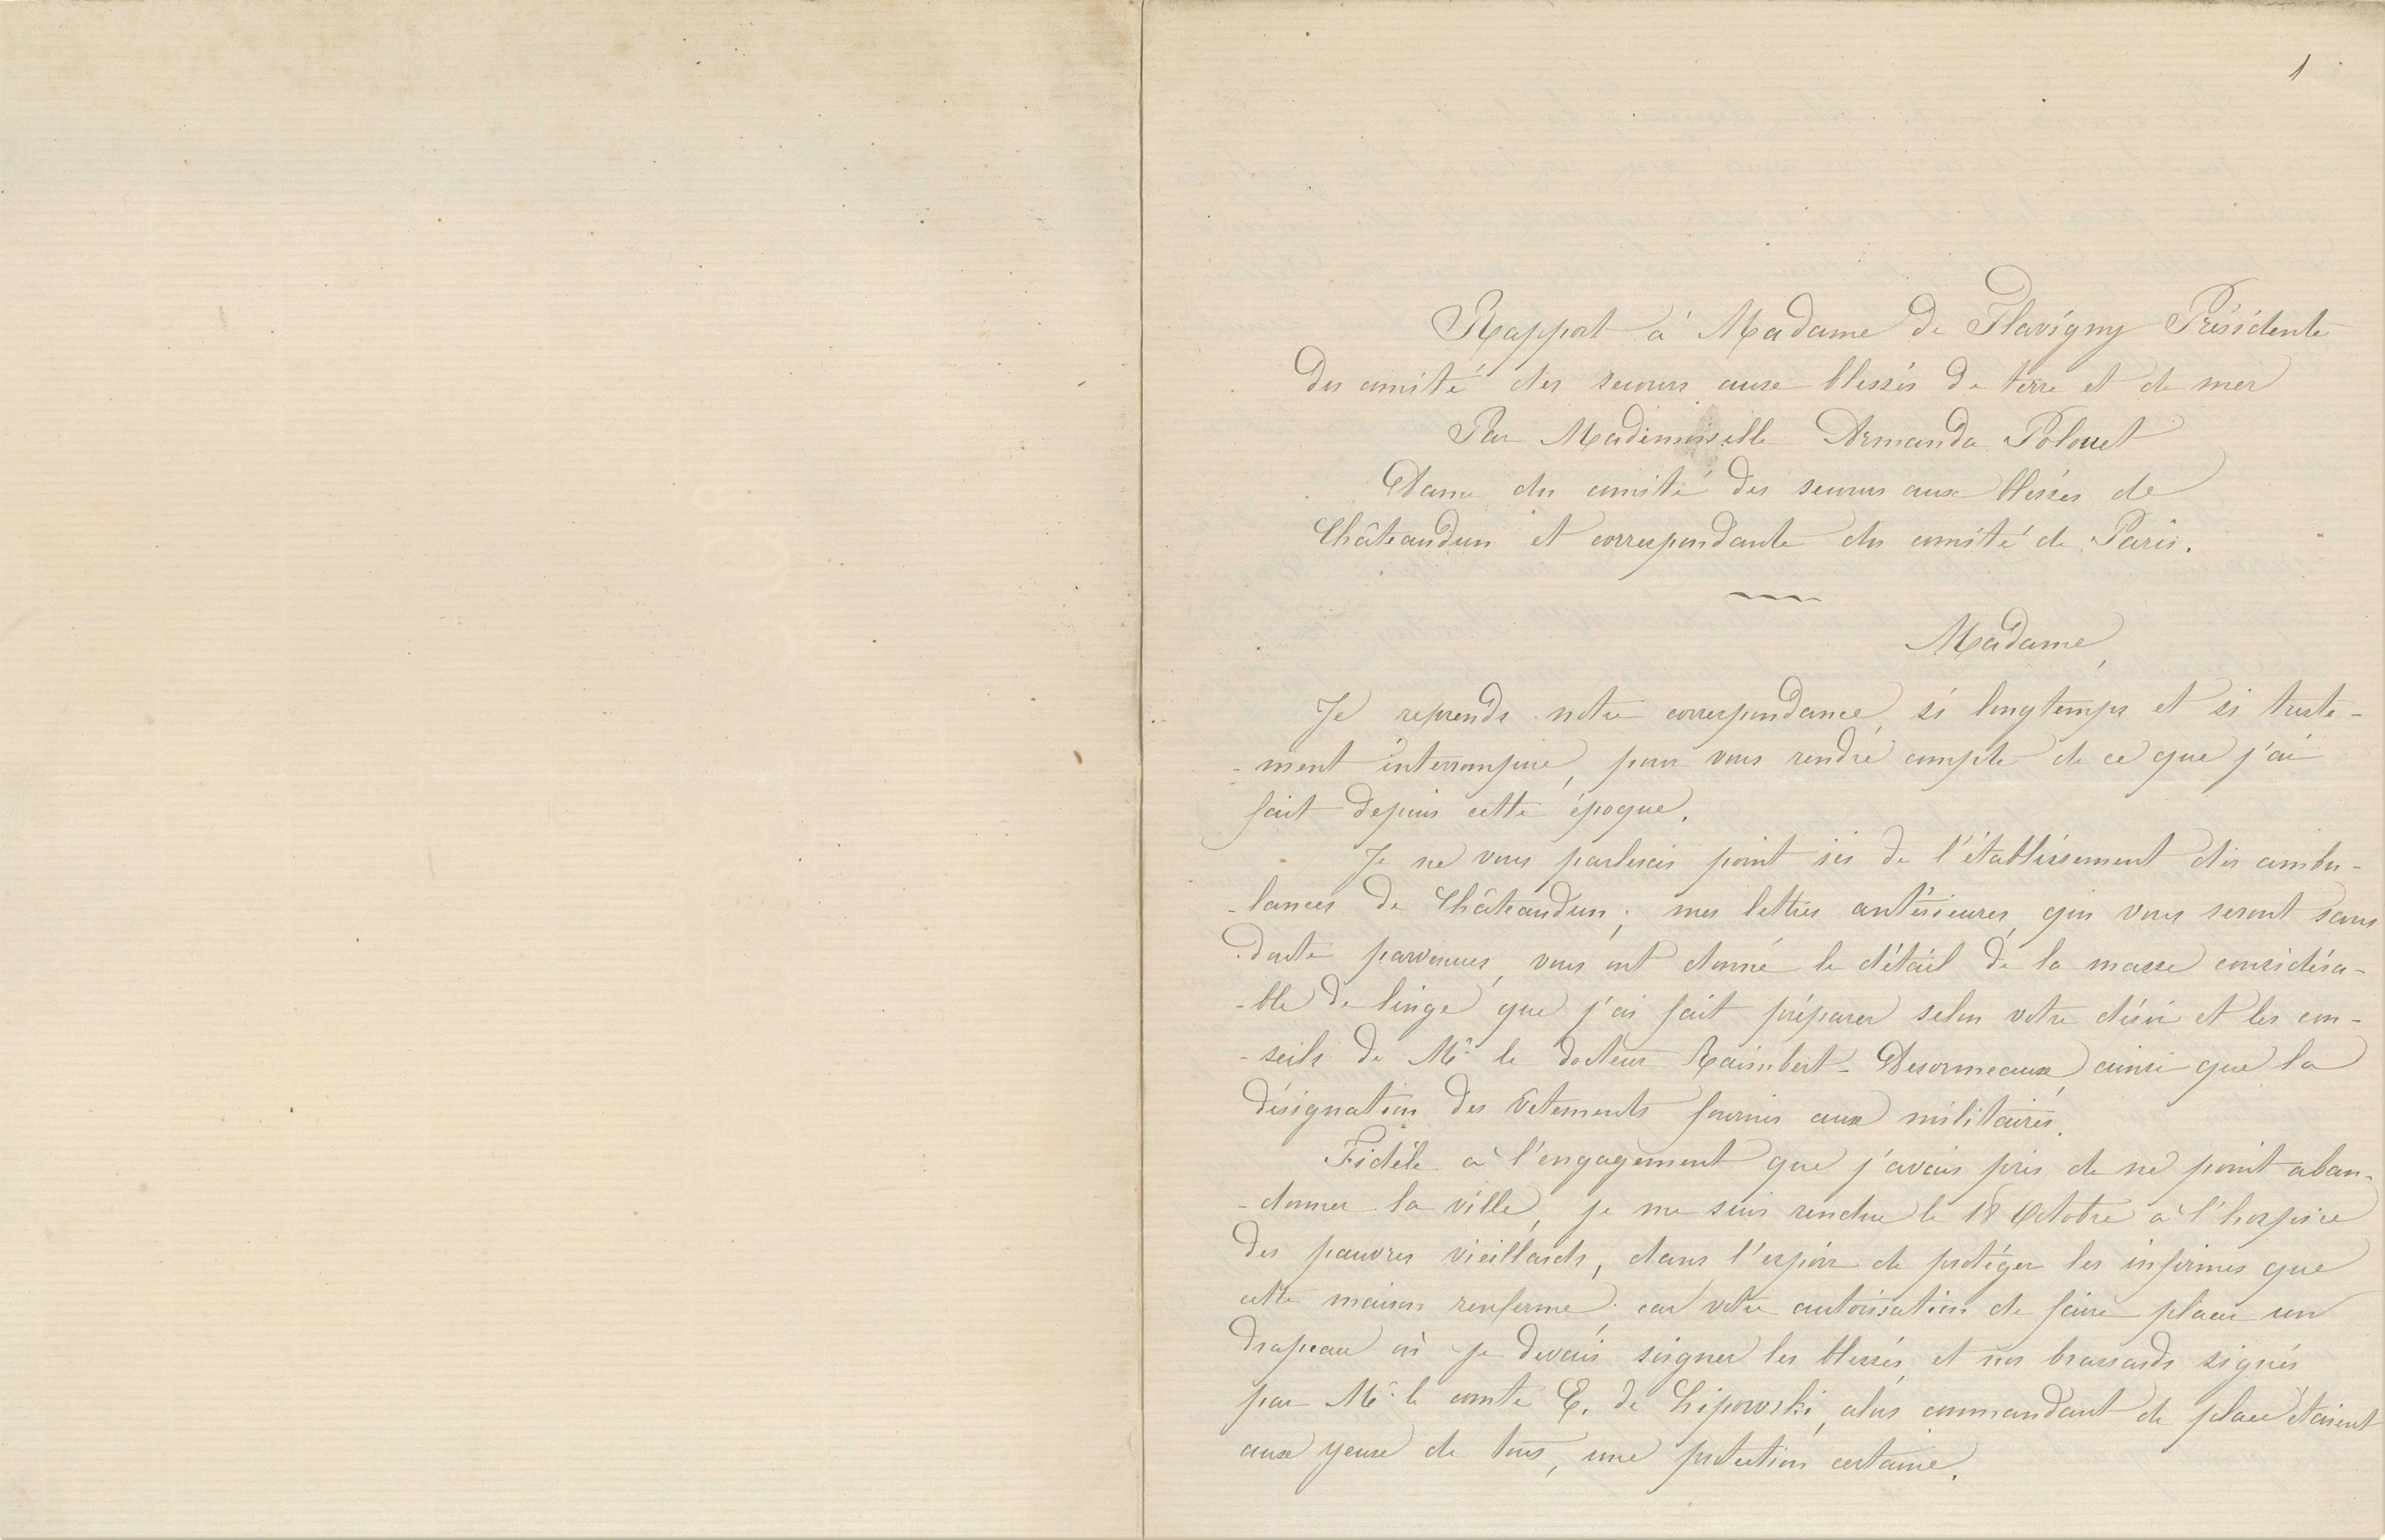 1
Rapport à Madame de Flavigny Présidente
du comité des secours aux blessés de terre et de mer
Par Mademoiselle Armanda Polouet
Dame du comité des secours aux blessés de
Châteaudun et correspondante du comité de Paris.
Madame,
Je reprends notre correspondance, si longtemps et si triste-
-ment interrompue, pour vous rendre compte de ce que j'ai
fait depuis cette époque.
Je ne vous parlerais point ici de l'établissement des ambu-
-lances de Châteaudun; mes lettres antérieures, qui vous seront sans
doute parvenues, vous ont donné le détail de la masse considéra-
-ble de linge que j'ai fait préparer selon votre désir et les con-
-seils de Mr le docteur Raimbert-Desormeaux, ainsi que la
désignation des vêtements fournis aux militaires.
Fidèle à l'engagement que j'avais pris de ne point aban-
-donner la ville, je me suis rendue le 18 Octobre à l'hospice
des pauvres vieillards, dans l'espoir de protéger les infirmes que
cette maison renferme; car votre autorisation de faire placer un
drapeau où je devais soigner les blessés, et nos brassards signés
par Mr le comte E. de Lipowski, alors commandant de place étaient
aux yeux de tous, une protection certaine.